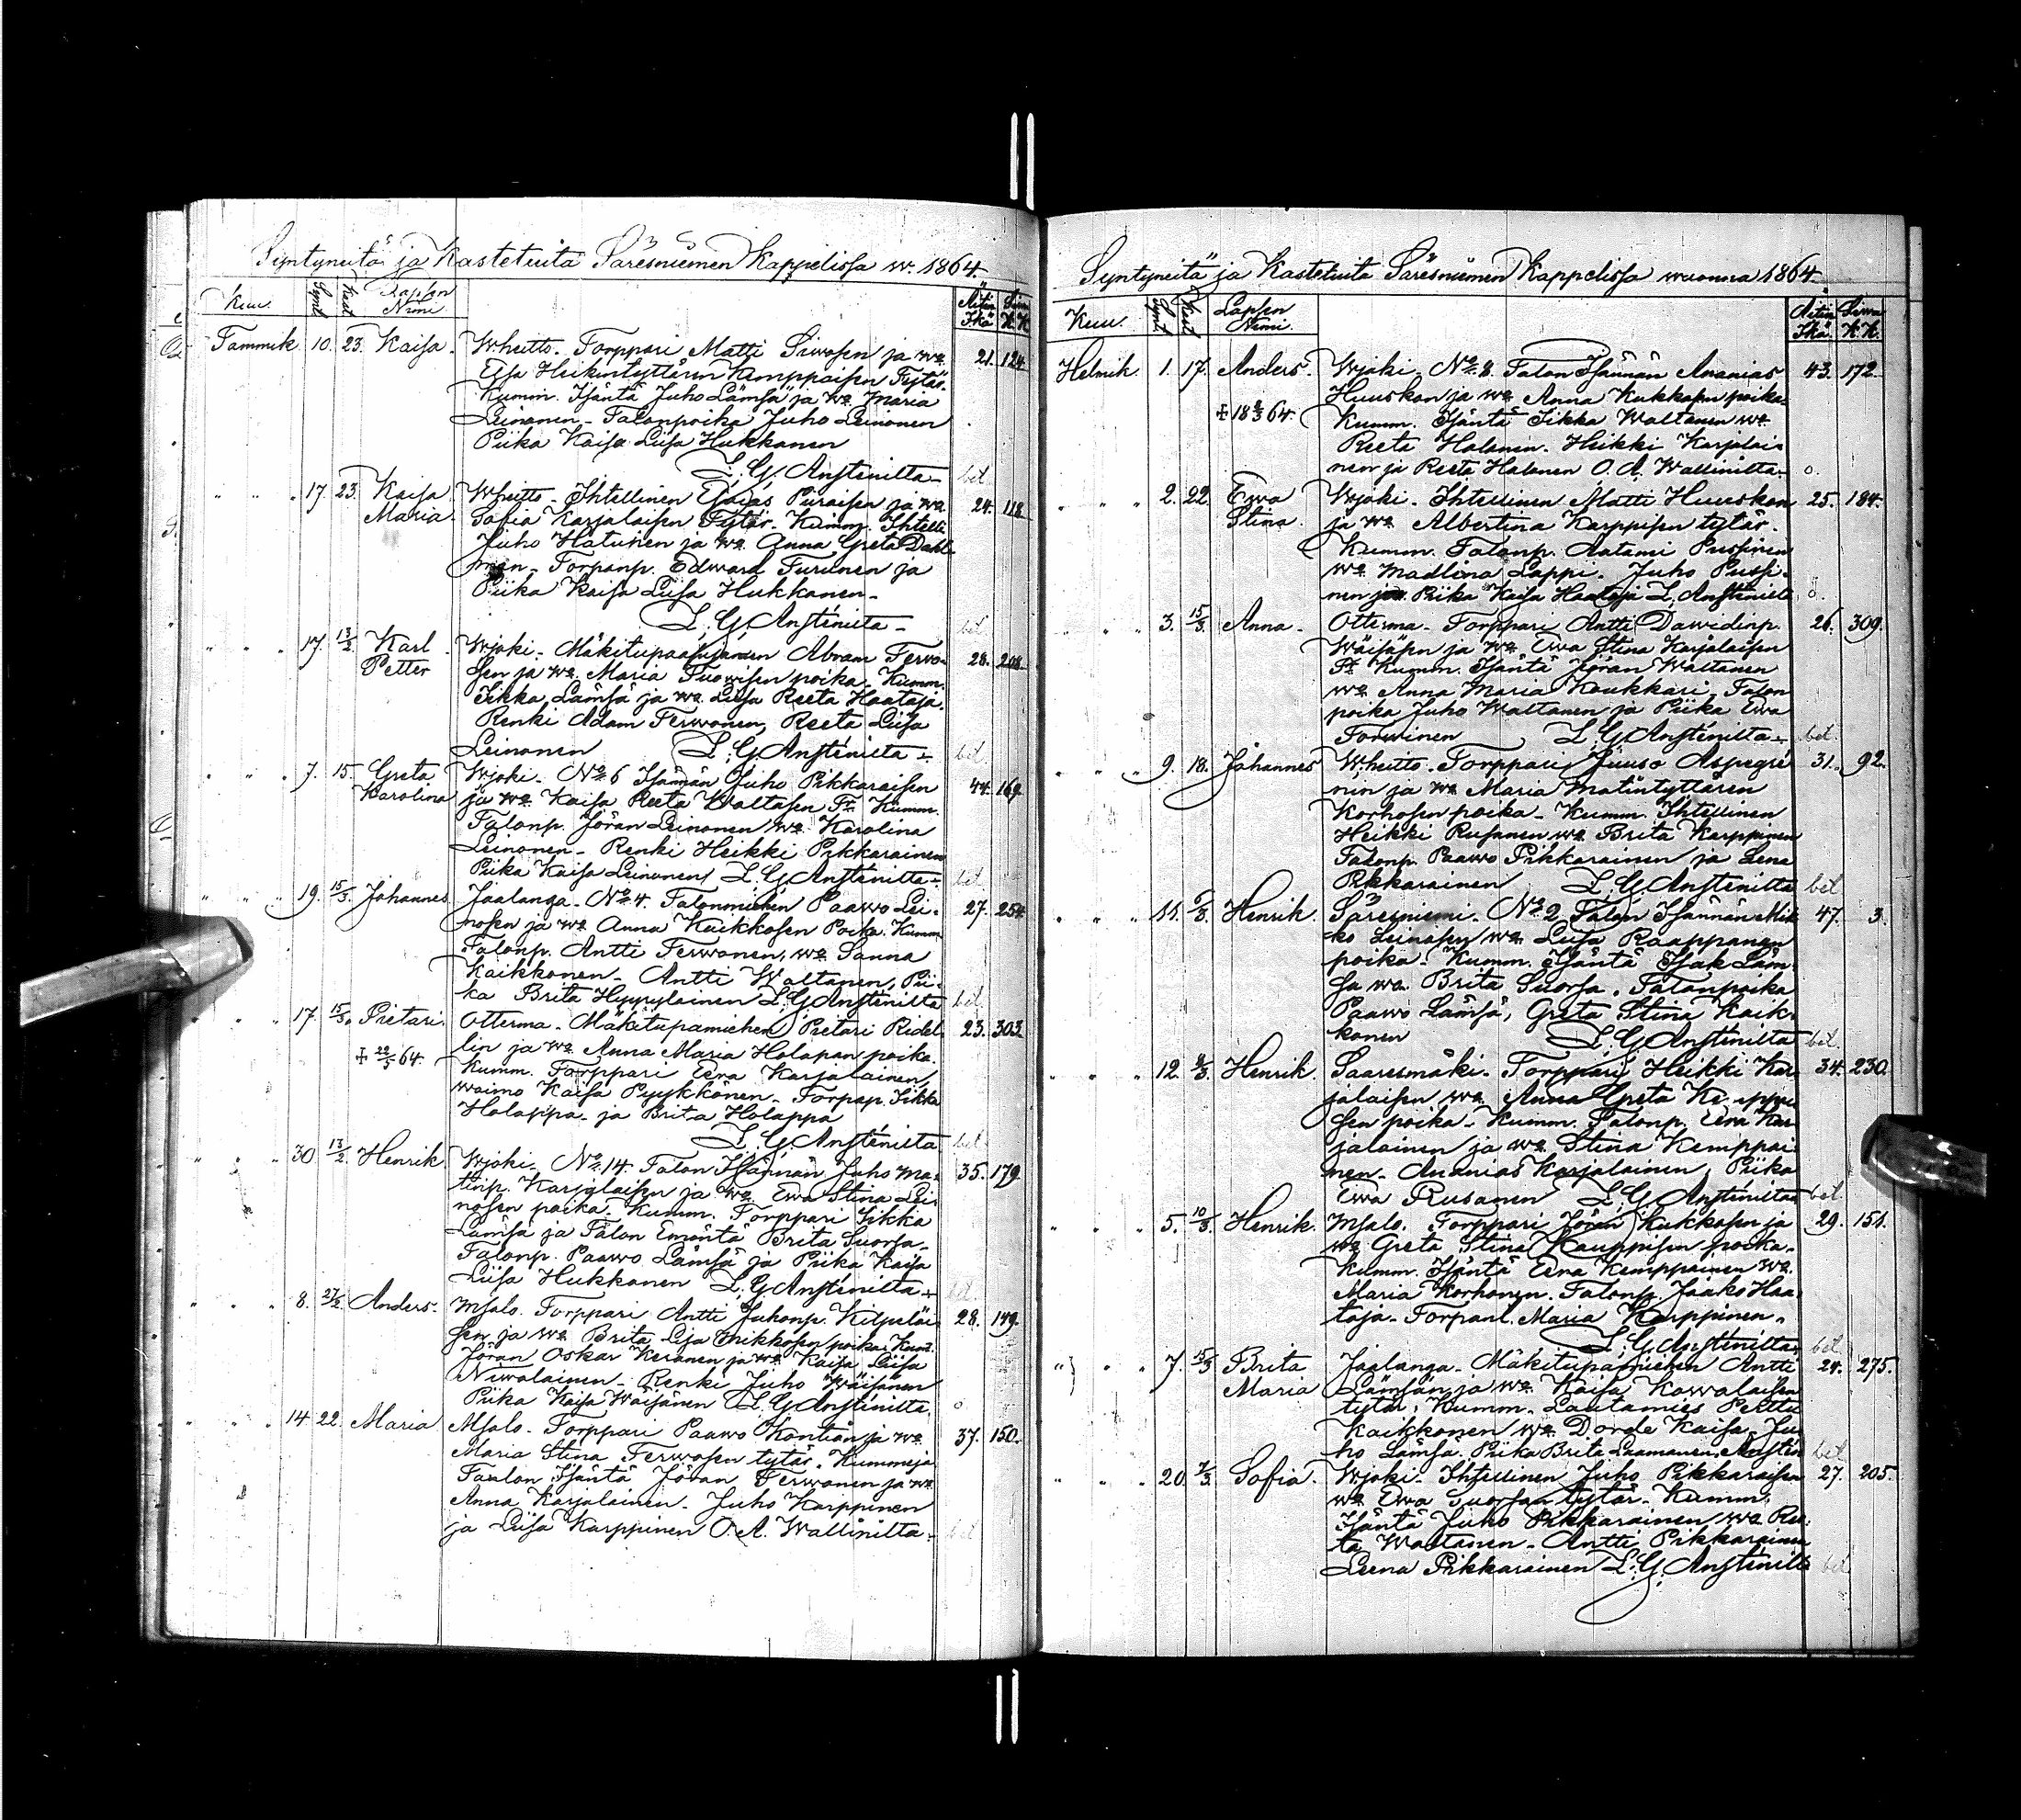 Syntyneitä ja Kastetuita Säresniemen Kappelissa w. 1864
Kuu. Synt Kast Lapsen Nimi Äitin Ikä Siwu K.K.
Tammik 10. 23. Kaisa. Wheitto. Torppari Matti Siwosen ja wa 21. 124.
Elsa Heikintyttären Kemppaisen Tytär.
Kumm. Isäntä Juho Lämsä ja wa Maria
Leinonen - Talonpoika Juho Leinonen
Piika Kaisa Liisa Hukkanen
L. G. Anstenilta - bet
" " " 17. 23. Kaisa Wheitto - Ihtellinen Esaias Piiraisen ja wa 24. 118.
Maria. Sofia Karjalaisen Tytär - Kumm. Ihtelli
Juho Hatunen ja wa. Anna Greta Dahl
man - Torpanp. Edward Turunen ja
Piika Kaisa Liisa Hukkanen -
L. G. Anstenilta - bet
" " " 17. 13/2 Karl Wjoki - Mäkitupa Abram Terwo 28. 208.
Petter sen ja wa. Maria Tuowisen poika. Kumm.
Iikka Lämsä ja wa. Liisa Reeta Haataja.
Renki Adam Terwonen, Reeta Liisa
Leinonen L. G. Anstenilta - bet
" " " 7. 15. Greta Wjoki - No 6 Isännän Juho Pikkaraisen 44. 169.
Karolina ja wa Kaisa Reeta Waltasen Tr Kumm.
Talonp. Jöran Leinonen wa. Karolina
Leinonen - Renki Heikki Pikkarainen
Piika Kaisa Leinonen L. G. Anstenilta - bet
" " " 19. 15/3. Johannes Jaalanga - No 4. Talonmiehen Paawo Lei- 27. 254.
nosen ja wa Anna Kaikkosen Poika. Kumm
Talonp. Antti Terwonen, wa Sanna
Kaikkonen - Antti Waltanen, Pii-
ka Brita Hyyryläinen L. G Anstenilta bet
" " " 17. 15/3. Pietari. Otterma - Mäkitupamiehen Pietari Ridel 23. 303.
lin ja wa Anna Maria Holapan poika.
+ 22/5 64. Kumm. Torppari Eera Karjalainen,
waimo Kaisa Pyykkönen - Torpap. Iikka
Holappa ja Brita Holappa
L. G. Anstenilta bet
" " " 30 13/2. Henrik Wjoki - No 14. Talon Isännän Juho Ma- 35. 179.
tinp. Karjalaisen ja wa. Ewa Stina Lei-
nosen poika. Kumm. Torppari Iikka
Lämsä ja Talon Emäntä Brita Suorsa -
Talonp. Paawo Lämsä ja Piika Kaisa
Liisa Hukkanen L. G Anstenilta - bet
" " " 8. 27/2 Anders. Msalo. Torppari Antti Juhonp. Kilpeläi 28. 149.
sen ja wa. Brita Lisa Mikkosen poika Kum.
Jöran Oskar Keränen ja wa. Kaisa Liisa
Niwalainen - Renki Juho Wäisänen
Piika Kaisa Wäisänen L. G Anstenilta. o
" " " 14 22. Maria Msalo - Torppari Paawo Kontian ja wa 37. 150.
Maria Stina Terwosen tytär. Kummeja
Taalon Isäntä Jöran Terwonen ja wa
Anna Karjalainen - Juho Karppinen
ja Liisa Karppinen O. A. Wallinilta. bet
Syntyneitä ja Kastetuita Säresniemen Kappelissa wuonna 1864
Kuu. Synt Kast Lapsen Nimi. Äitin Ikä Siwu K.K.
Helmik 1. 17. Anders. Wjoki - No 8. Talon Isännän Ananias 43. 172.
Huuskon ja wa Anna Kukkosen poika.
+ 18 8/3 64. Kumm. Isäntä Iikka Waltanen wa
Reeta Halonen. Heikki Karjalai
nen ja Reeta Halonen O. A. Wallinilta. o.
" " " 2. 22 Ewa Wjoki - Ihtellinen Matti Huuskon 25. 184.
Stina. ja wa Albertina Karppisen tytär.
Kumm. Talonp. Aatami Pussinen
wa Madlina Lappi. Juho Pussi-
nen ja Piika Kaisa Haataja L. Anstenilta o.
" " " 3. 15/3. Anna - Otterma - Torppari Antti Dawidinp. 26. 309.
Wäisäsen ja wa Ewa Stina Karjalaisen
Tr Kumm. Isäntä Jöran Waltanen
wa Anna Maria Koukkari, Talon
poika Juho Waltanen ja Piika Ewa
Torwinen L. G. Anstenilta - bet.
" " " 9. 18. Johannes Wheitto - Torppari Juuso Aspegre 31. 92.
nin ja wa Maria Matintyttären
Korhosen poika - Kumm. Ihtellinen
Heikki Rusanen wa Brita Karppinen
Talonp. Paawo Pikkarainen ja Lena
Pikkarainen L. G Anstenilta bet
" " " 11. 6/3. Henrik. Säresniemi - No 2 Talon Isännän Mik 47. 3.
ko Leinosen wa Liisa Raappanan
poika - Kumm. Isäntä Isak Läm
sä wa. Brita Suorsa. Talonpoika
Paawo Lämsä, Greta Stina Kaik-
konen L. G Anstenilta bet
" " " 12. 8/3. Henrik. Saaresmäki - Torppari Heikki Kar 34. 230.
jalaisen wa Anna Greta
sen poika - Kumm. Talonp. Eera Kar
jalainen ja wa Stina Kemppai
nen - Ananias Karjalainen, Piika
Ewa Rusanen L. G. Anstenilta bet
" " " 5. 10/3. Henrik. Msalo. Torppari Jöran Kukkosen ja 29. 151.
wa Greta Stina Kauppisen poika.
Kumm. Isäntä Eera Kemppainen wa.
Maria Korhonen. Talonp. Jaako Haa
taja - Torpanl. Maria Karppinen.
L. G. Anstenilta bet
" " " 7. 15/3 Brita Jaalanga - Mäkitupamiehen Antti 24. 275.
Maria Lämsän ja wa Kaisa Kowalaisen
tytär, Kumm. Lautamies Petter
Kaikkonen wa Dorde Kaisa, Ju
ho Lämsä. Piika Brita Laamanen. Ansten bet
" " " 20. 7/3. Sofia. Wjoki - Ihtellinen Juho Pikkaraisen 27. 205.
wa Ewa Suorsan tytär - Kumm.
Isäntä Juho Pikkarainen wa Ree-
ta Waltanen - Antti Pikkarainen
Leena Pikkarainen L. G. Anstenilta bet